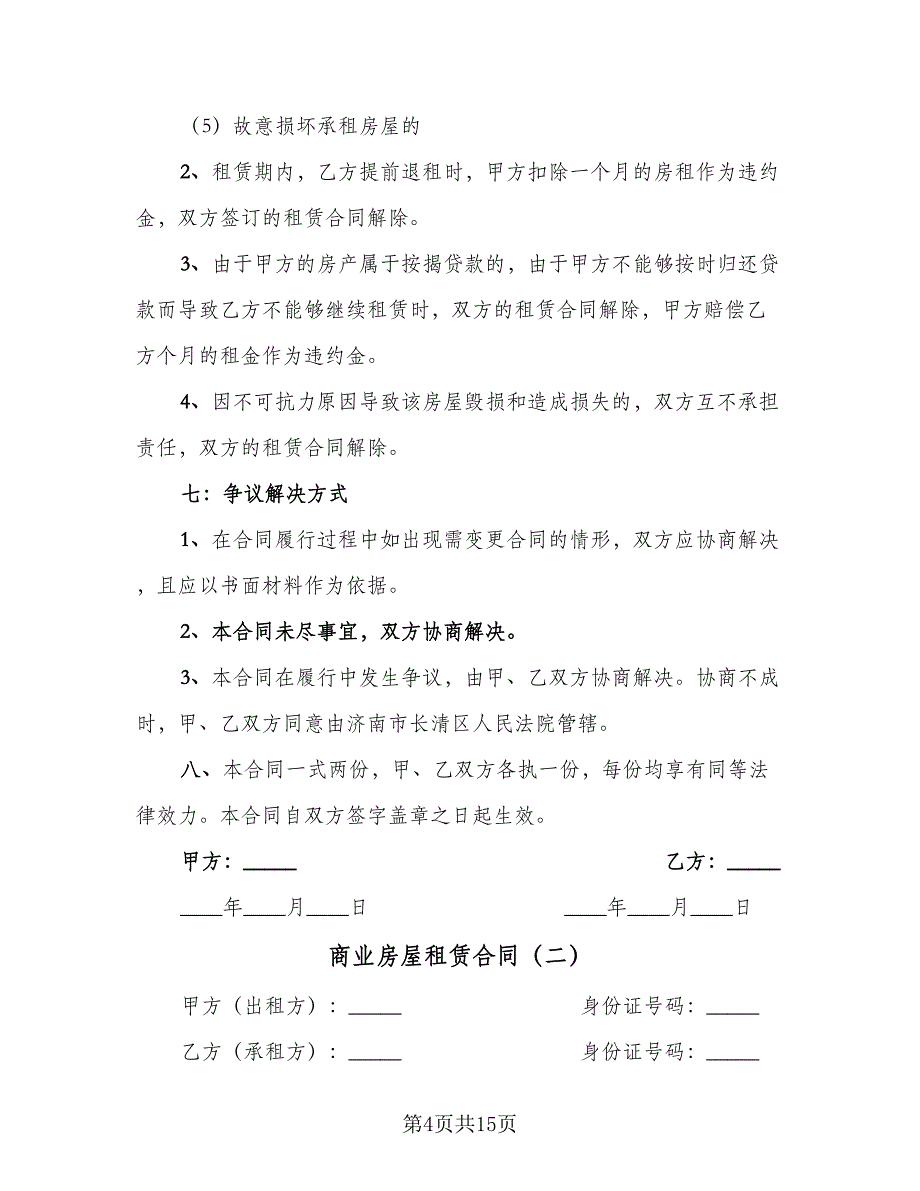 （5）故意损坏承租房屋的
2、租赁期内，乙方提前退租时，甲方扣除一个月的房租作为违约
金，双方签订的租赁合同解除。
3、由于甲方的房产属于按揭贷款的，由于甲方不能够按时归还贷
款而导致乙方不能够继续租赁时，双方的租赁合同解除，甲方赔偿乙
方个月的租金作为违约金。
4、因不可抗力原因导致该房屋毁损和造成损失的，双方互不承担
责任，双方的租赁合同解除。
七：争议解决方式
1、在合同履行过程中如出现需变更合同的情形，双方应协商解决
，且应以书面材料作为依据。
2、本合同未尽事宜，双方协商解决。
3、本合同在履行中发生争议，由甲、乙双方协商解决。协商不成
时，甲、乙双方同意由济南市长清区人民法院管辖。
八、本合同一式两份，甲、乙双方各执一份，每份均享有同等法
律效力。本合同自双方签字盖章之日起生效。
甲方：_____ 乙方：_____
____年____月____日 ____年____月____日
商业房屋租赁合同（二）
甲方（出租方）：_____ 身份证号码：_____
乙方（承租方）：_____ 身份证号码：_____
第4页共15页